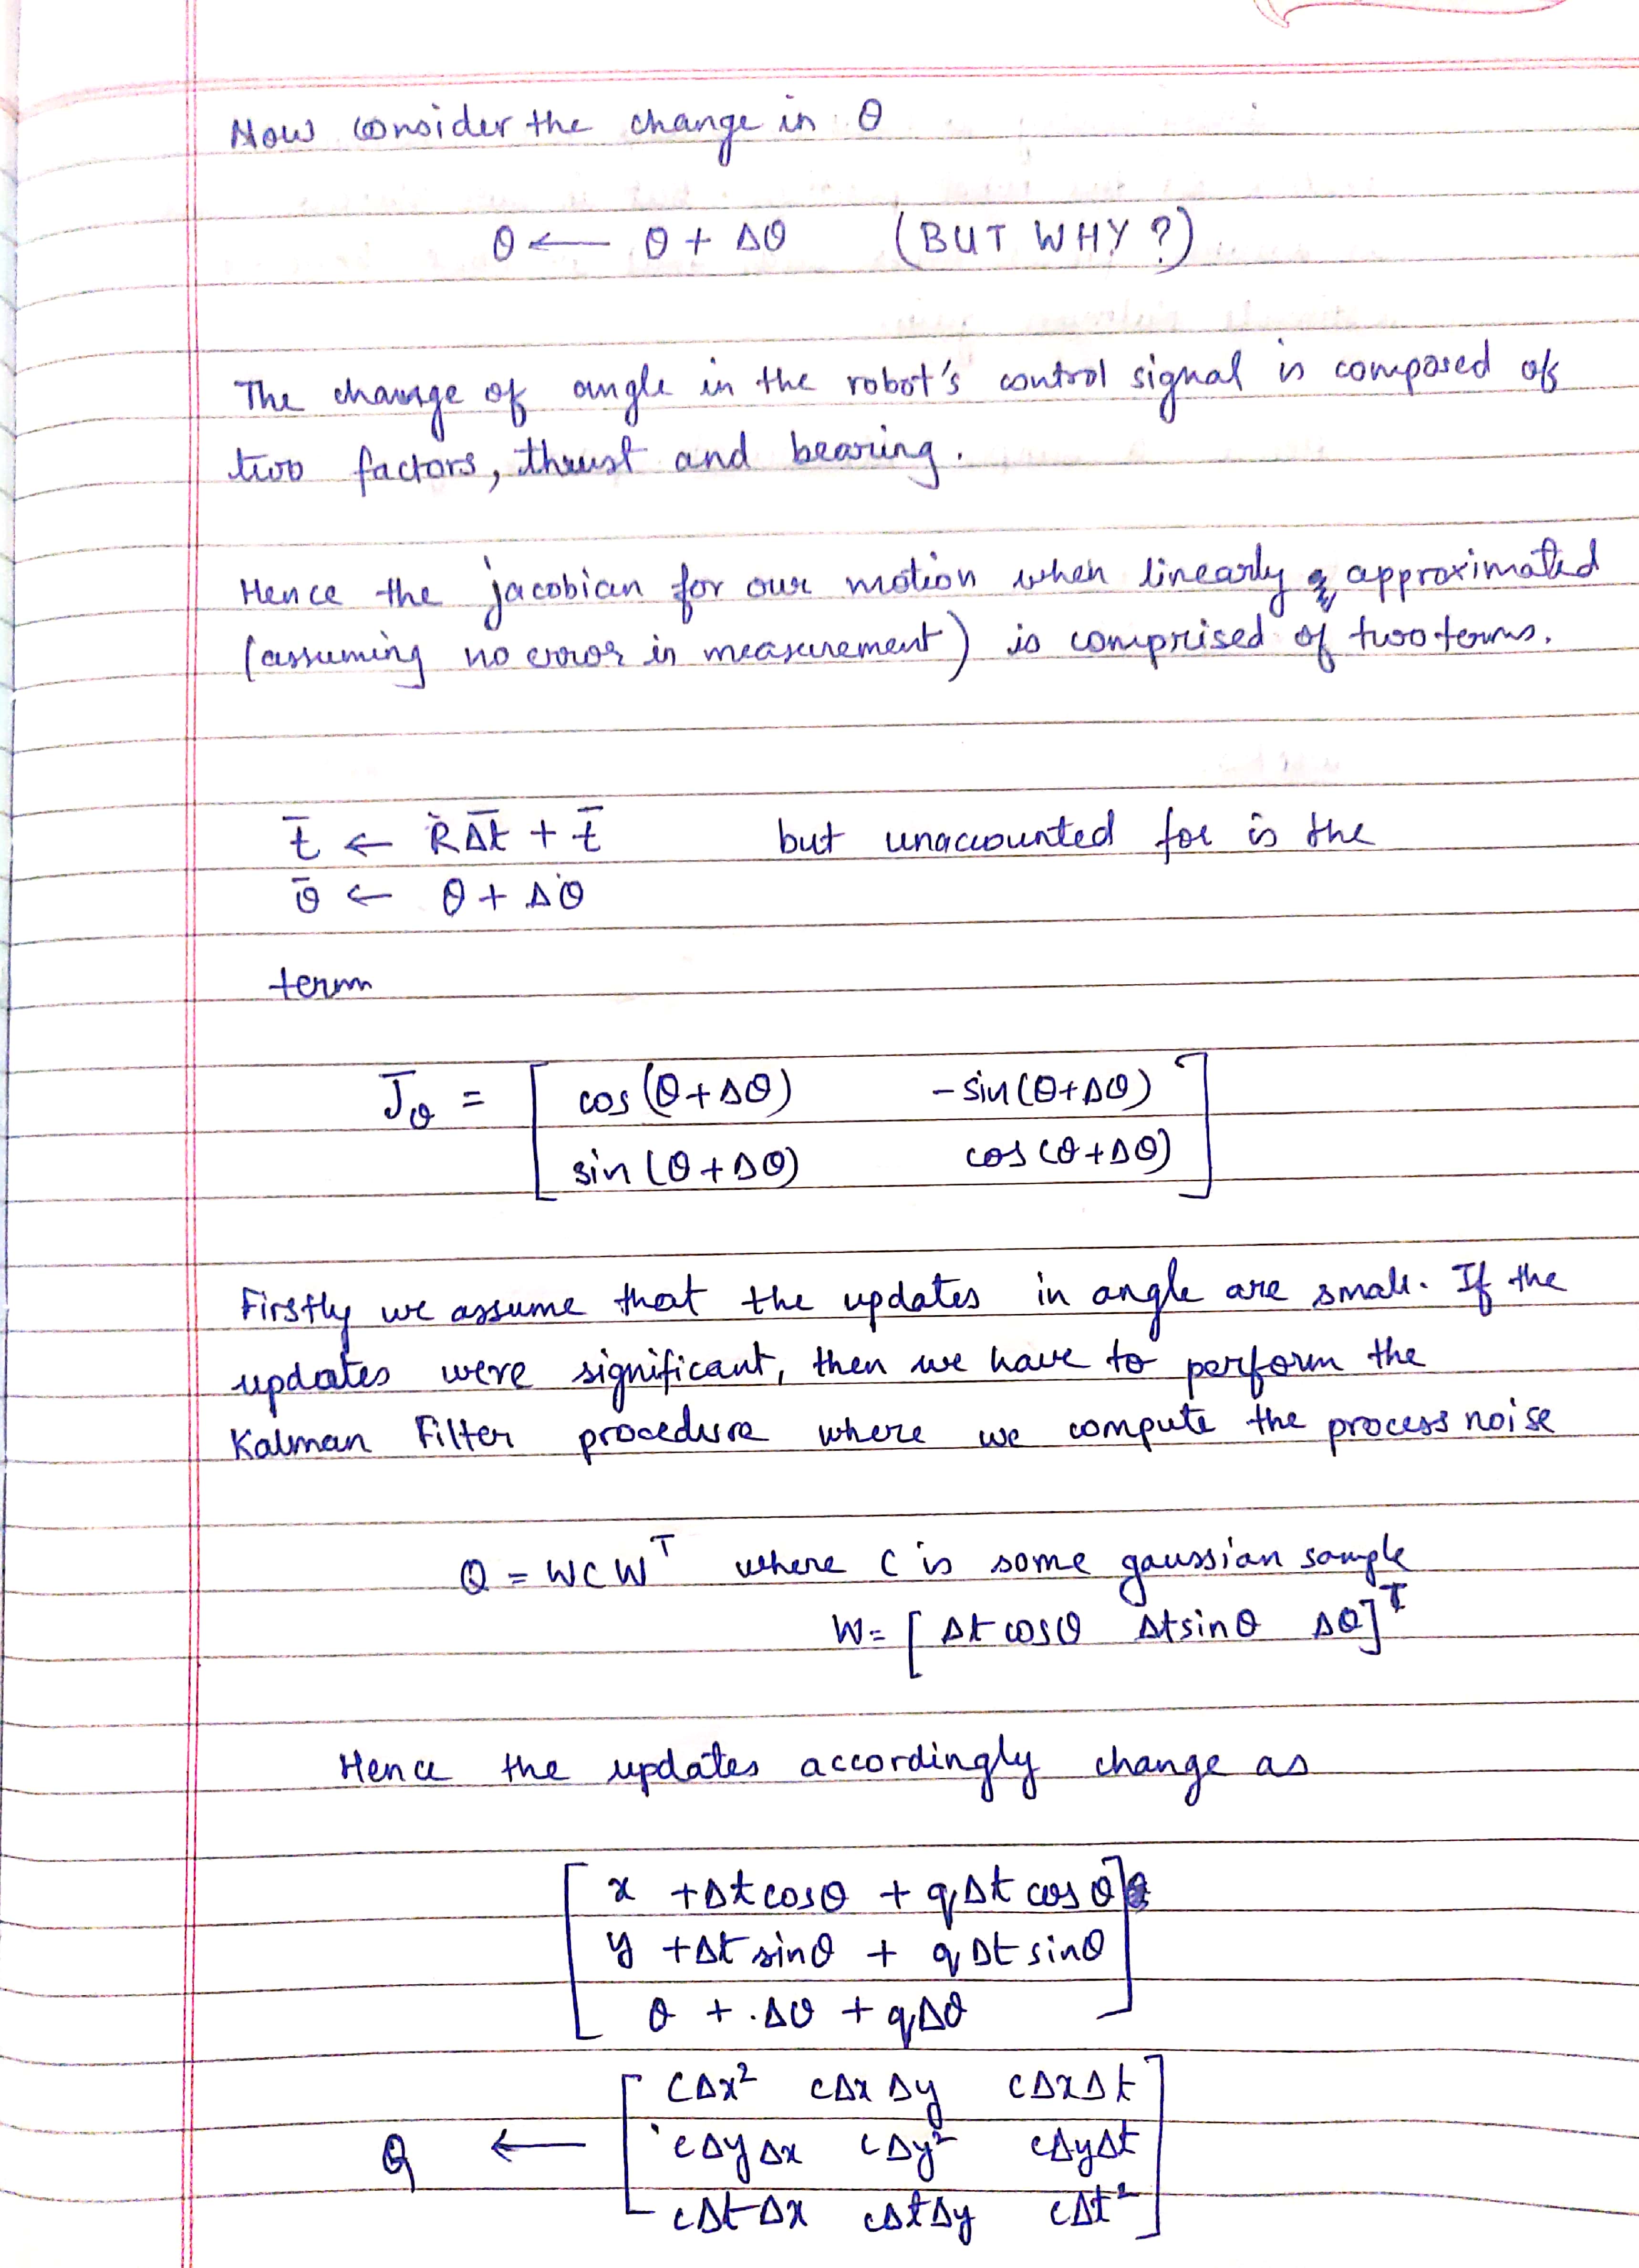 Now consider the change in θ
θ ← θ + Δθ (BUT WHY?)
The change of angle in the robot's control signal is composed of
two factors, thrust and bearing.
Hence the jacobian for our motion when linearly approximated
(assuming no error in measurement) is comprised of two terms.
t̄ ← RΔ̄t + t̄ but unaccounted for is the
θ̄ ← θ + Δθ
term
J̄θ = [ cos(θ+Δθ) -sin(θ+Δθ)
sin(θ+Δθ) cos(θ+Δθ) ]
Firstly we assume that the updates in angle are small. If the
updates were significant, then we have to perform the
Kalman Filter procedure where we compute the process noise
Q = WCWᵀ where C is some gaussian sample
W = [Δt cosθ Δt sinθ Δθ]ᵀ
Hence the updates accordingly change as
[ x + Δt cosθ + qΔt cosθ
y + Δt sinθ + qΔt sinθ
θ + Δθ + qΔθ ]
Q ← [ cΔx² cΔxΔy cΔxΔt
cΔyΔx cΔy² cΔyΔt
cΔtΔx cΔtΔy cΔt² ]